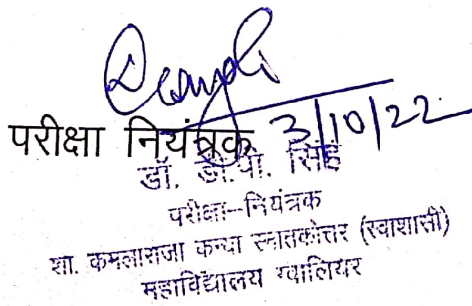 परीक्षा नियंत्रक 3/10/22
डॉ. डी.पी. सिंह
परीक्षा-नियंत्रक
शा. कमलाराजा कन्या स्नातकोत्तर (स्वाशासी)
महाविद्यालय ग्वालियर